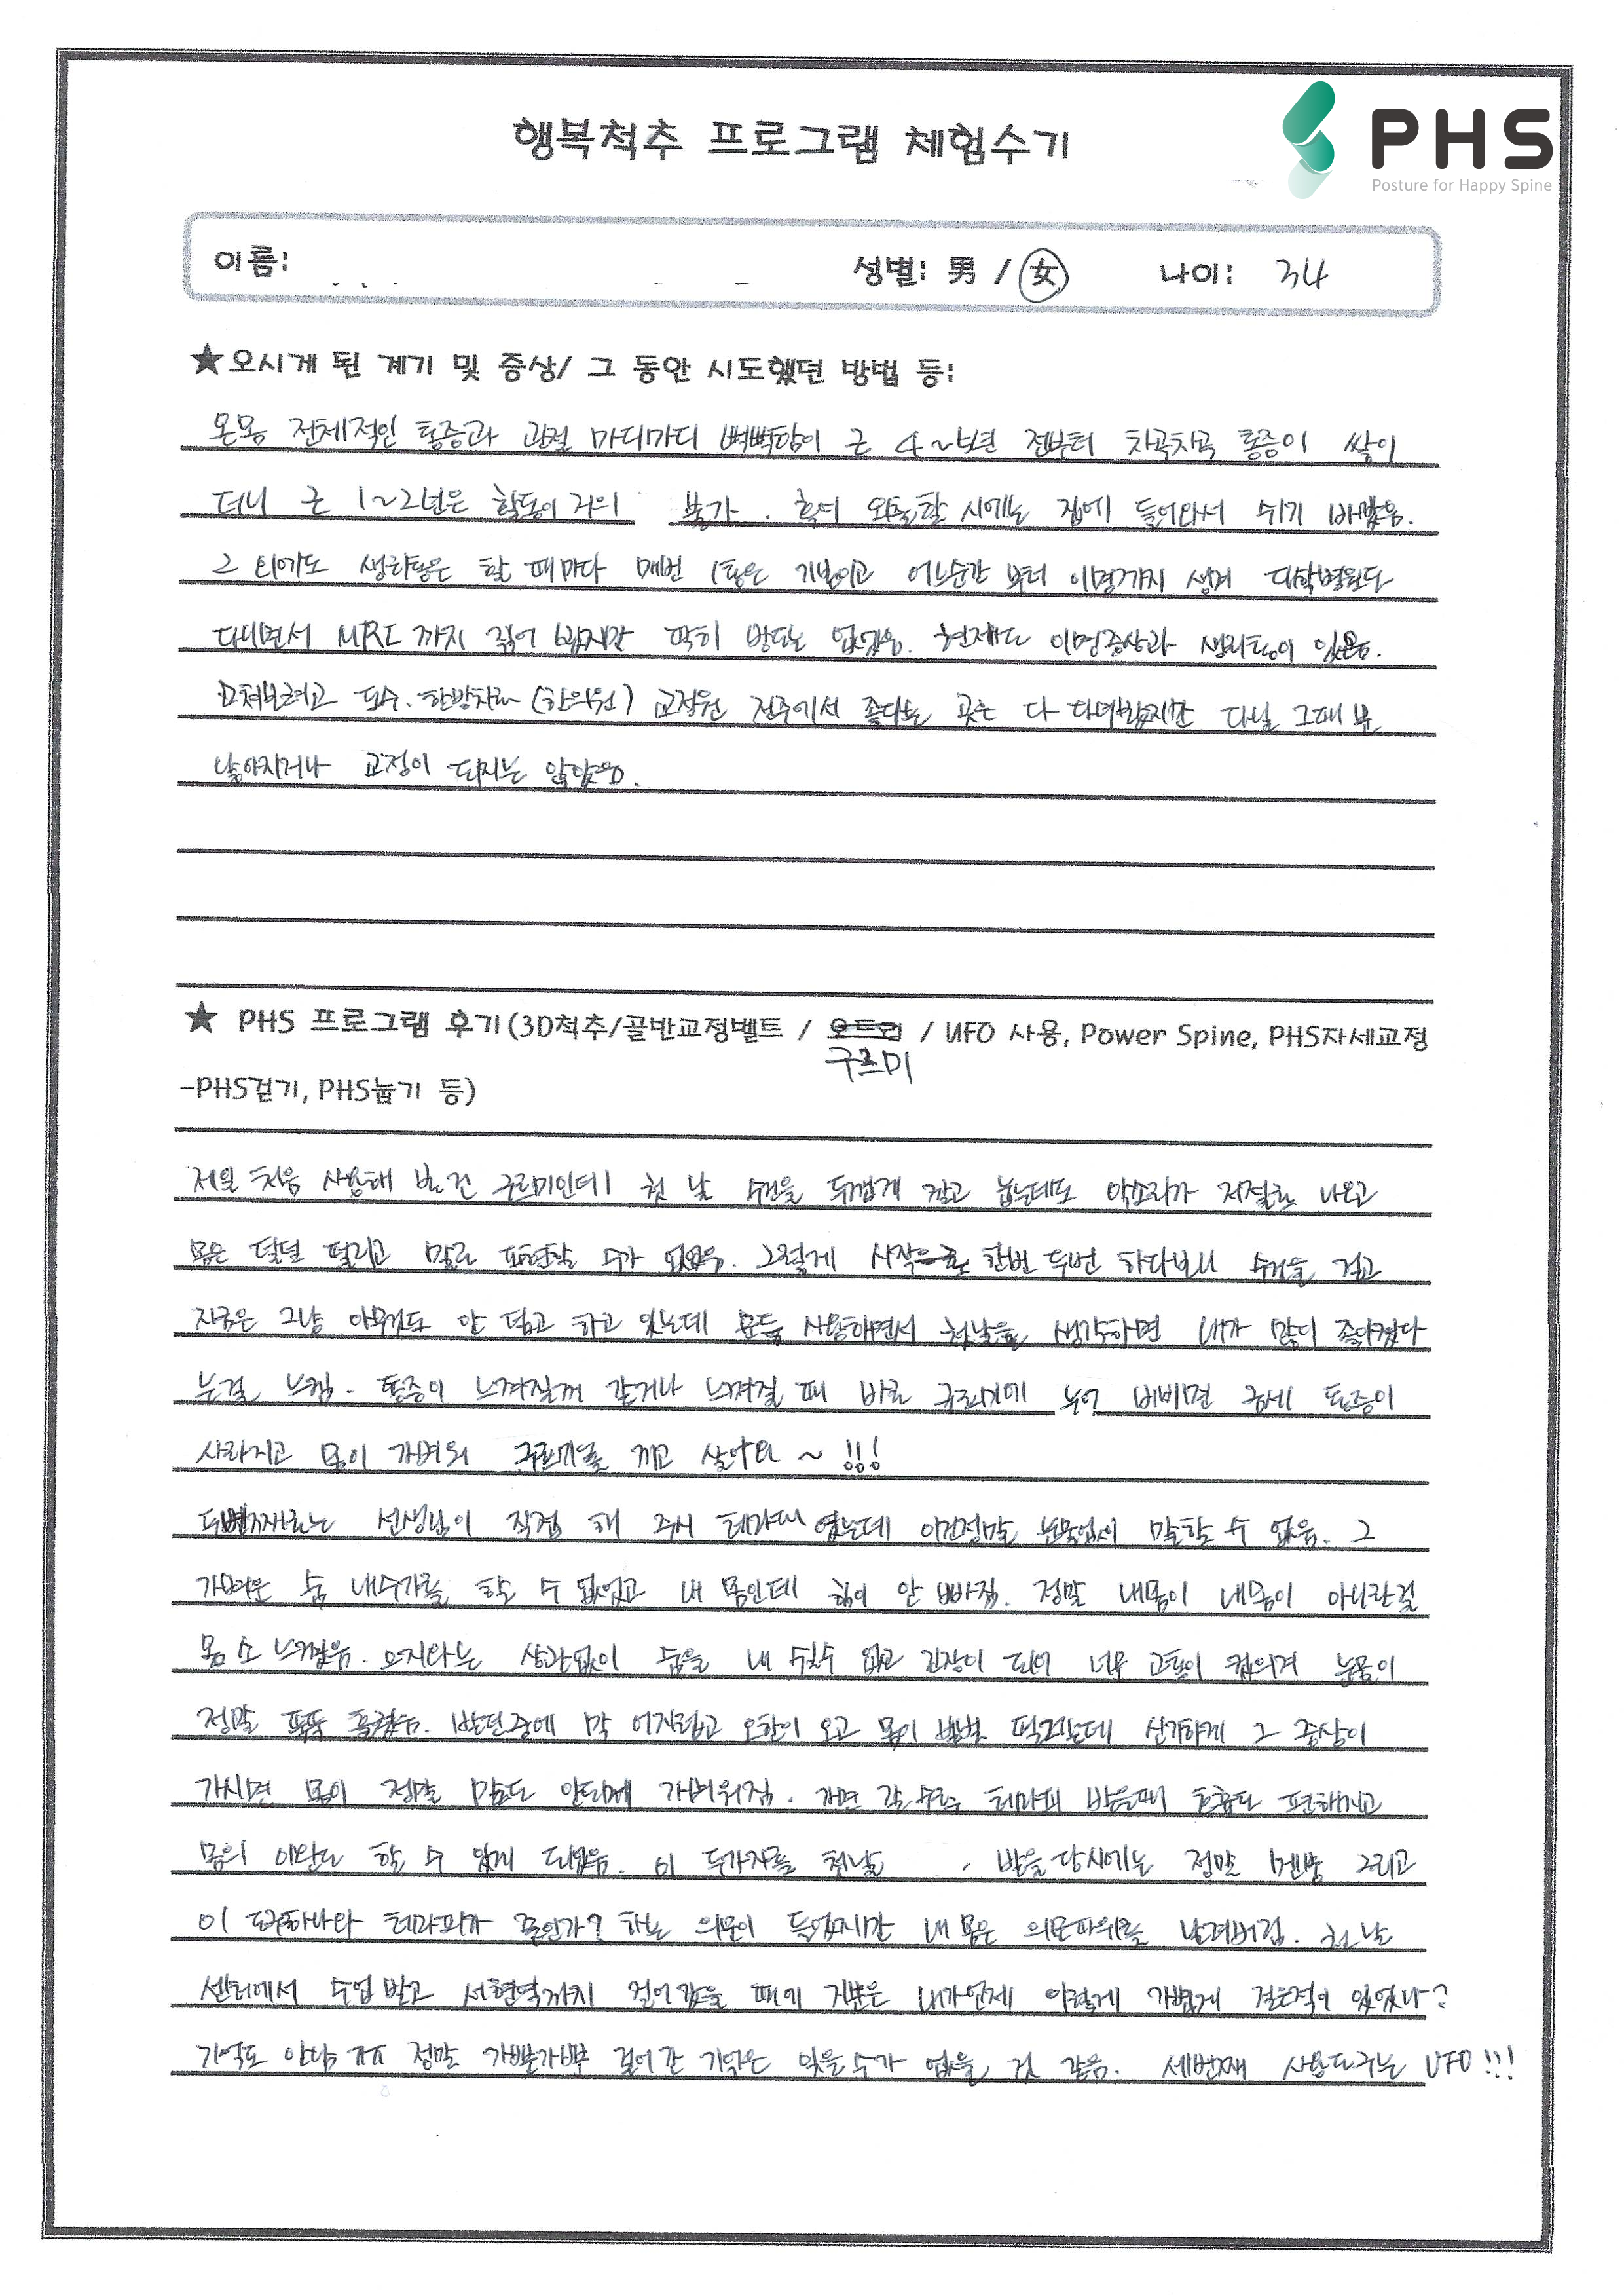 행복척추 프로그램 체험수기
PHS
Posture for Happy Spine
이름: 성별: 男 / 女 나이: 34
★오시게 된 계기 및 증상/ 그 동안 시도했던 방법 등:
온몸 전체적인 통증과 관절 마디마디 뻑뻑함이 근 4~5년 전부터 차곡차곡 통증이 쌓이
더니 근 1~2년은 활동이 거의 불가. 혹여 외출할 시에는 집에 들어와서 쉬기 바빴음.
그 외에도 생리통은 할 때마다 매번 기본이고 어느순간 부터 이명까지 생겨 대학병원도
다니면서 MRI 까지 찍어 봤지만 딱히 방도는 없었음. 현재도 이명증상과 생리통이 있음.
고쳐보려고 도수. 한방치료 (한의원) 교정원 전주에서 좋다는 곳은 다 다녀봤지만 다닐 그때 뿐
낳아지거나 교정이 되지는 않았음.
★ PHS 프로그램 후기(3D척추/골반교정벨트 / 오트리 / UFO 사용, Power Spine, PHS자세교정
구르미
-PHS걷기, PHS눕기 등)
제일 처음 사용해 본 건 구르미인데 첫 날 수건을 두껍게 깔고 눕는데도 악소리가 저절로 나오고
몸은 덜덜 떨리고 말로 표현할 수가 없었음. 그렇게 시작으로 한번 두번 하다보니 수건을 걷고
지금은 그냥 아무것도 안 덮고 하고 있는데 문득 사용하면서 첫날을 생각하면 내가 많이 좋아졌다
는걸 느낌. 통증이 느껴질꺼 같거나 느껴질 때 바로 구르미에 누어 비비면 금세 통증이
사라지고 몸이 가벼워 구르미를 끼고 살아요 ~ !!!
두번째로는 선생님이 직접 해 주신 테라피 였는데 이건정말 눈물없이 말할 수 없음. 그
가벼운 숨 내쉬기를 할 수 없었고 내 몸인데 힘이 안 빠짐. 정말 내몸이 내몸이 아니란걸
몸소 느꼈음. 의지와는 상관없이 숨을 내 쉴수 없고 긴장이 되어 너무 고통이 눈물이
정말 뚝뚝 흘렀음. 받던중에 막 어지럽고 오한이 오고 몸이 떨리는데 신기하게 그 증상이
가시면 몸이 정말 말도 안되게 가벼워짐. 가면 갈 수록 테라피 받을때 호흡도 편해지고
몸의 이완도 할 수 있게 되었음. 이 두가지를 첫날 받을 당시에는 정말 멘붕 그리고
이 도구하나와 테라피가 뭐인가? 하는 의문이 들었지만 내 몸은 의문따위를 날려버림. 첫 날
센터에서 수업 받고 서현역까지 걸어 갔을 때에 기분은 내가언제 이렇게 가볍게 걸은적이 있었나?
기억도 안남 ㅠㅠ 정말 가뿐가뿐 걸어간 기억은 잊을수가 없을 것 같음. 세번째 사용도구는 UFO !!!